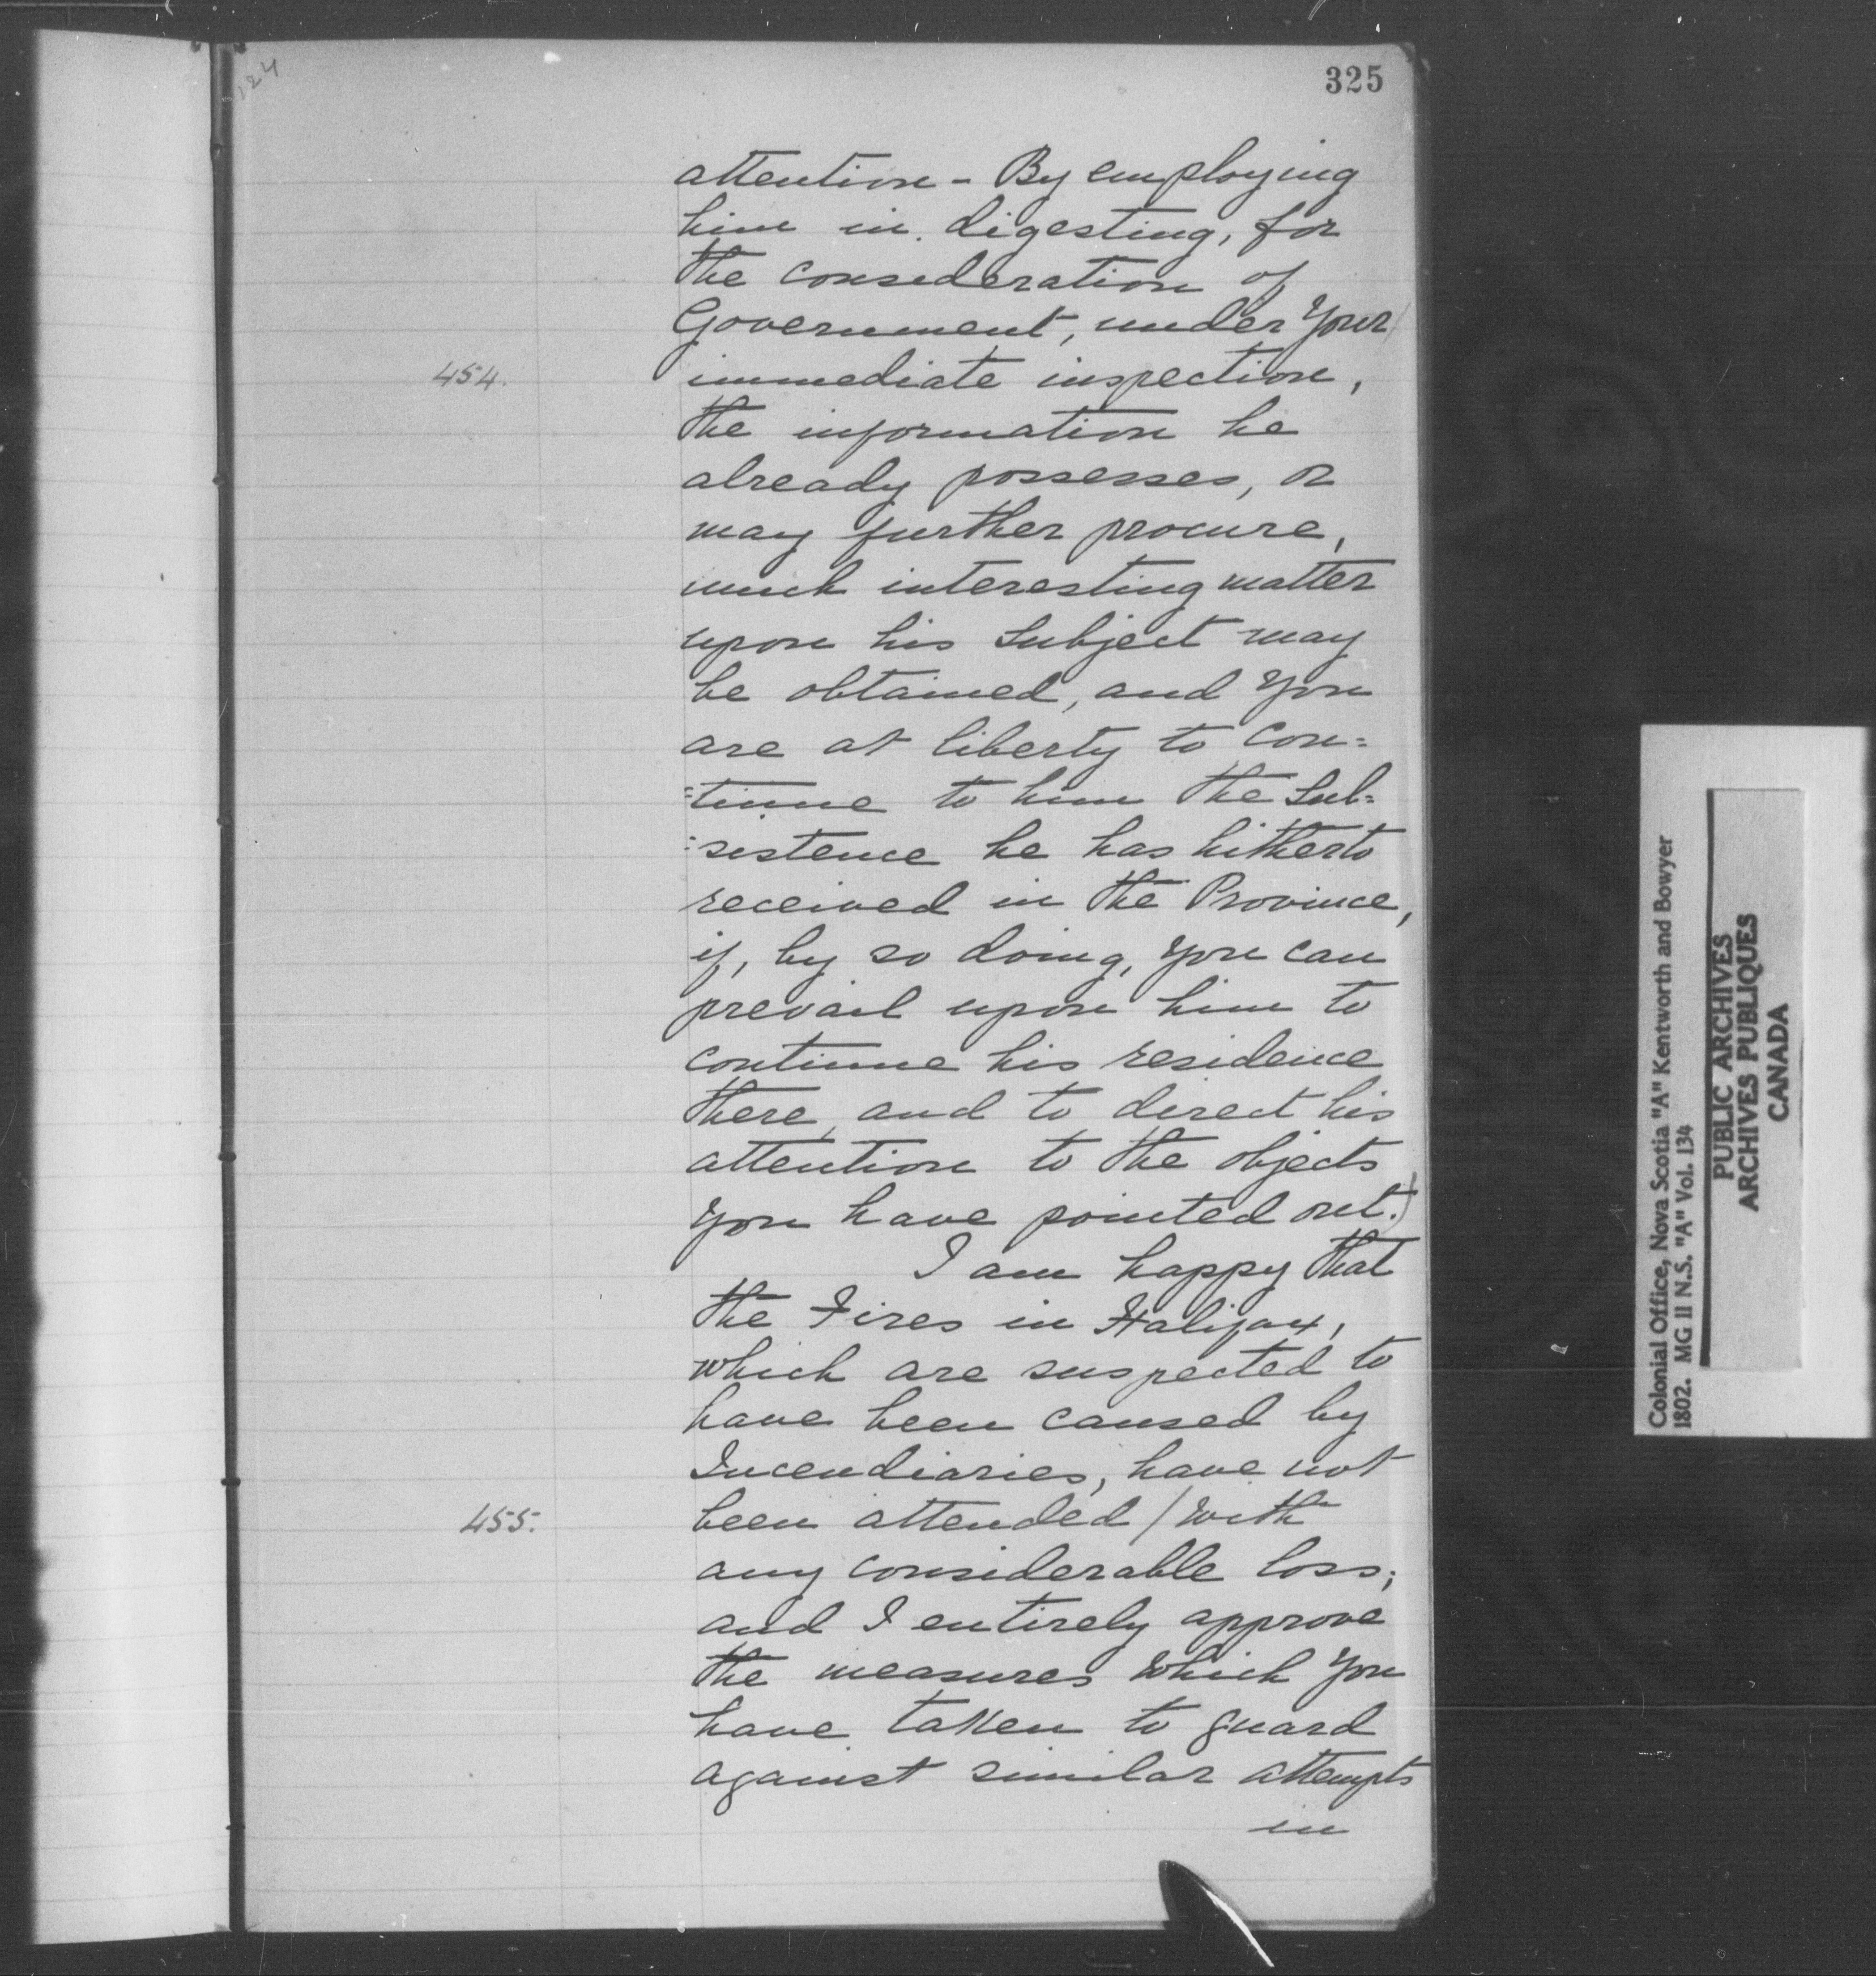 124
325
attention - By employing
him in digesting, for
the consideration of
Government, under Your/
454.
immediate inspection,
the information he
already possesses, or
may further procure,
much interesting matter
upon his Subject may
be obtained, and You
are at liberty to con=
=tinue to him the Sub=
=sistence he has hitherto
received in the Province,
if, by so doing, You can
prevail upon him to
continue his residence
there, and to direct his
attention to the objects
You have pointed out.)
I am happy that
the Fires in Halifax,
which are suspected to
have been caused by
Incendiaries, have not
455.
been attended / with
any considerable loss;
and I entirely approve
the measures which You
have taken to guard
against similar attempts
in
Colonial Office, Nova Scotia "A" Kentworth and Bowyer
1802. MG II N.S. "A" Vol. 134
PUBLIC ARCHIVES
ARCHIVES PUBLIQUES
CANADA